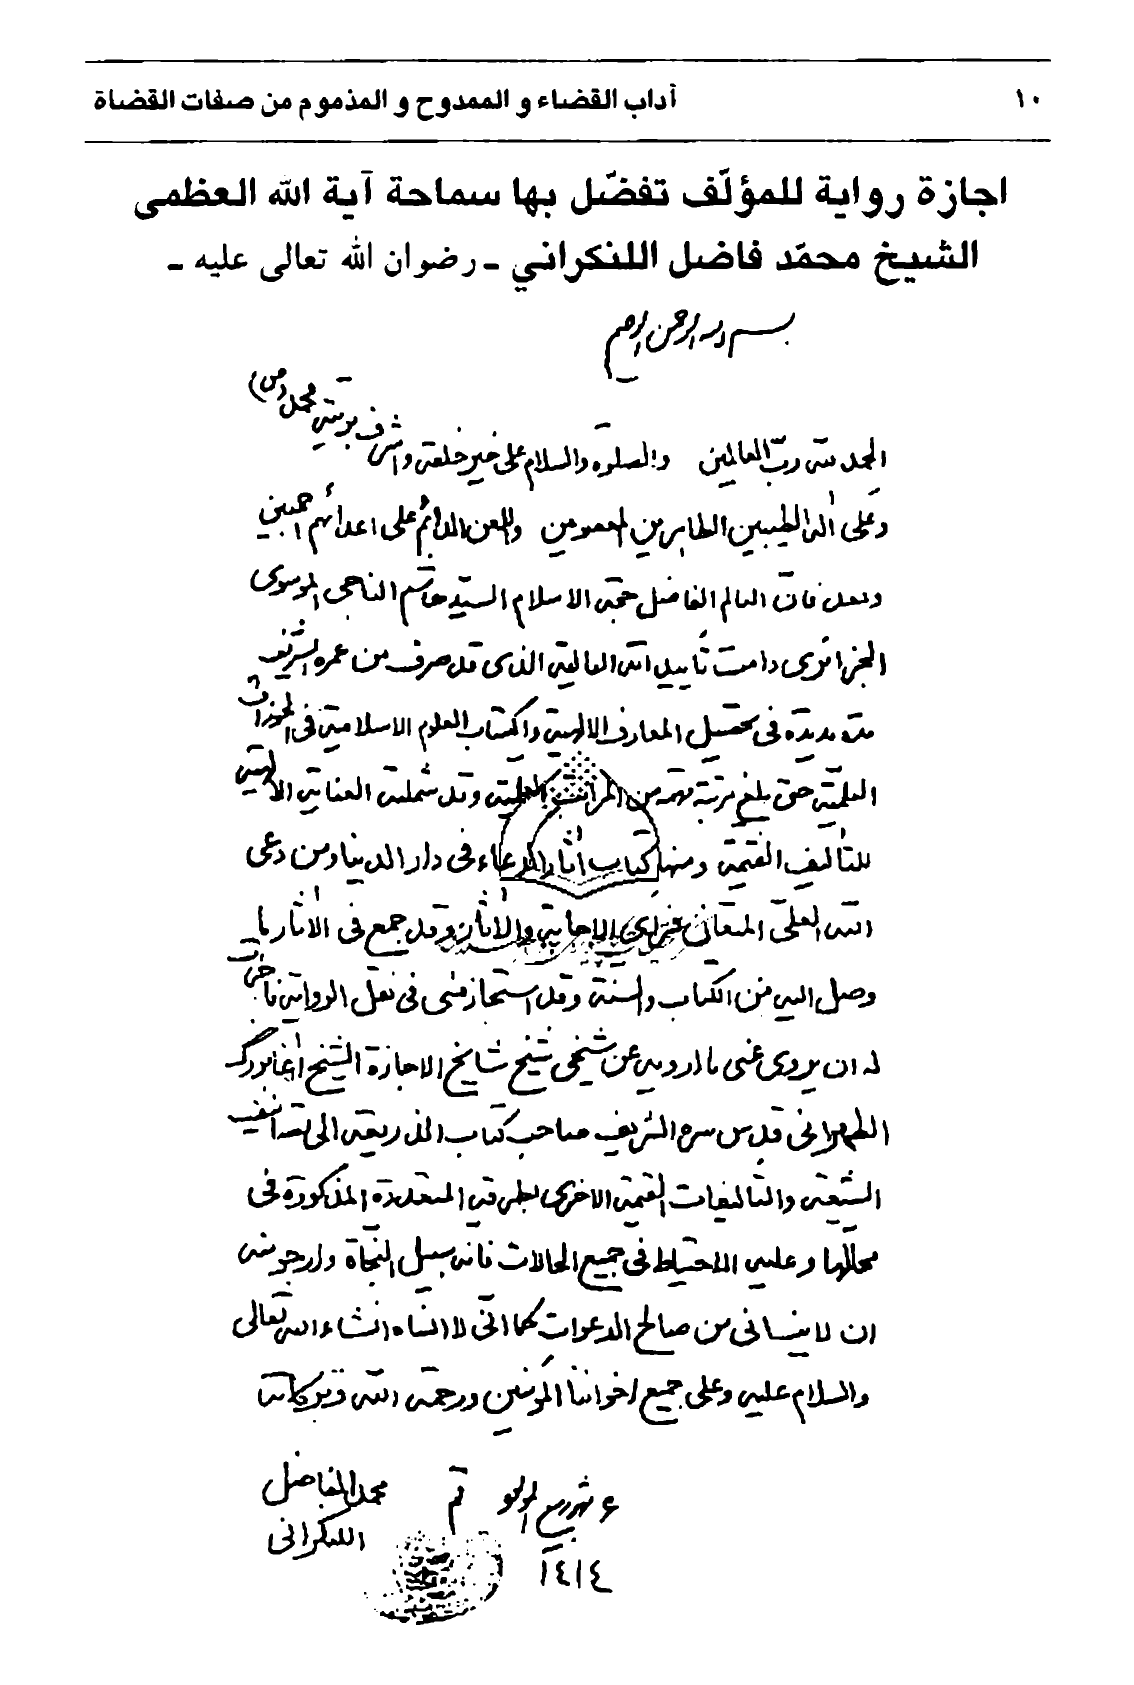 ١٠ آداب القضاء و الممدوح و المذموم من صفات القضاة
اجازة رواية للمؤلّف تفضّل بها سماحة آية الله العظمى
الشيخ محمّد فاضل اللنكراني ـ رضوان الله تعالى عليه ـ
بسم الله الرحمن الرحيم
الحمد لله ربّ العالمين والصلوة والسلام على خير خلقه واشرف بريته محمد (ص)
وعلى آله الطيبين الطاهرين المعصومين واللعن الدائم على اعدائهم اجمعين
وبعد فانّ العالم الفاضل حجة الاسلام السيّد هاشم الناجى الموسوى
الجزائرى دامت تأييداته العالية الذى قد صرف من عمره الشريف
مدة مديدة فى تحصيل المعارف الالهية واكتساب العلوم الاسلامية فى الحوزات
العلمية حتى بلغ مرتبة مهمة من المراتب العلمية وقد شملته العناية الالهية
للتأليف القيمة ومنها كتاب آثار الدعاء فى دار الدنيا ومن دعى
الله العلى المتعالى الاجابة والآثار وقد جمع فى الآثار ما
وصل اليه من الكتاب والسنة وقد استجاز منى فى نقل الرواية فأجزت
له ان يروى عنى ما ارويه عن شيخى شيخ مشايخ الاجازة الشيخ آغا بزرگ
الطهرانى قدس سره الشريف صاحب كتاب الذريعة الى تصانيف
الشيعة والتأليفات القيمة الاخرى بطرقه المتعددة المذكورة فى
محلّها وعليه الاحتياط فى جميع الحالات فانه سبيل النجاة وارجو منه
ان لا ينسانى من صالح الدعوات كما انّى لا انساه انشاء الله تعالى
والسلام عليه وعلى جميع اخواننا المؤمنين ورحمة الله وبركاته
۶ شهر ربيع المولود قم محمد الفاضل
١٤١٤ اللنكرانى